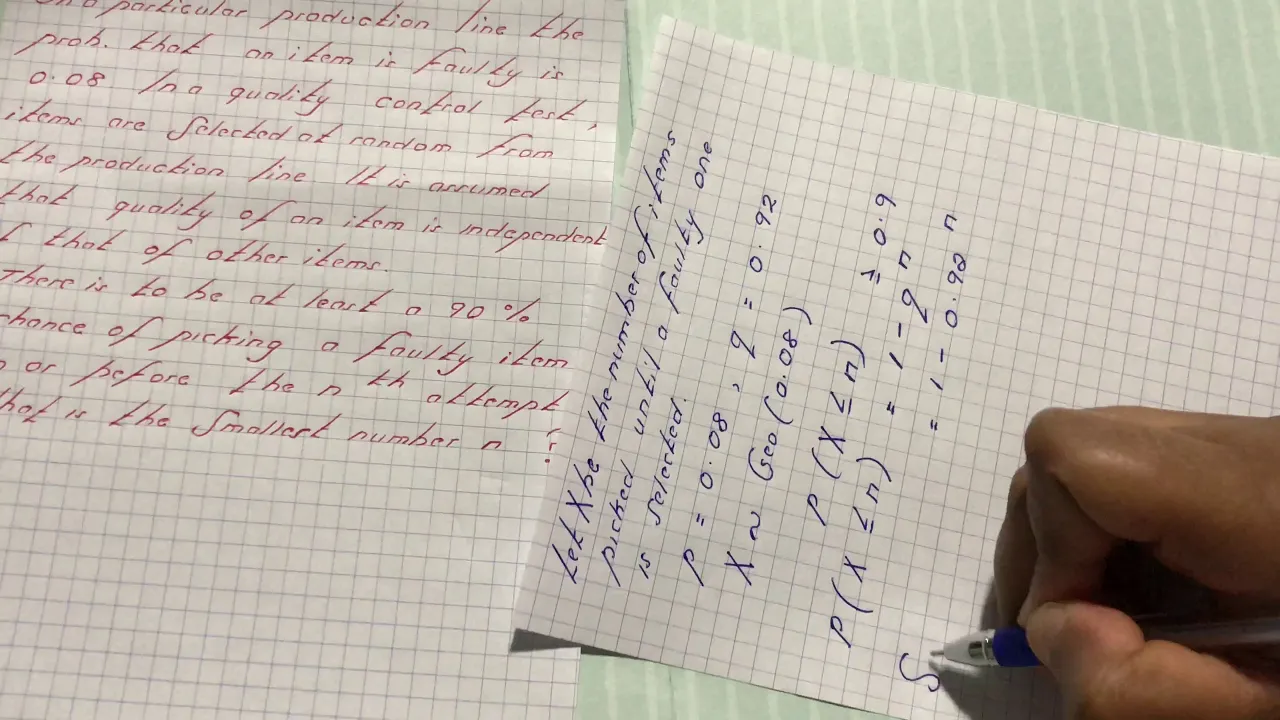 particular production line the
prob. that an item is faulty is
0.08 In a quality control test,
items are selected at random from
the production line It is assumed
that quality of an item is independent
that of other items.
There is to be at least a 90%
chance of picking a faulty item
or before the nth attempt
that is the smallest number n ?
Let X be the number of items
picked until a faulty one
is selected.
p = 0.08 , q = 0.92
X ~ Geo(0.08)
P(X ≤ n) ≥ 0.9
P(X ≤ n) = 1 - q^n
= 1 - 0.92^n
S